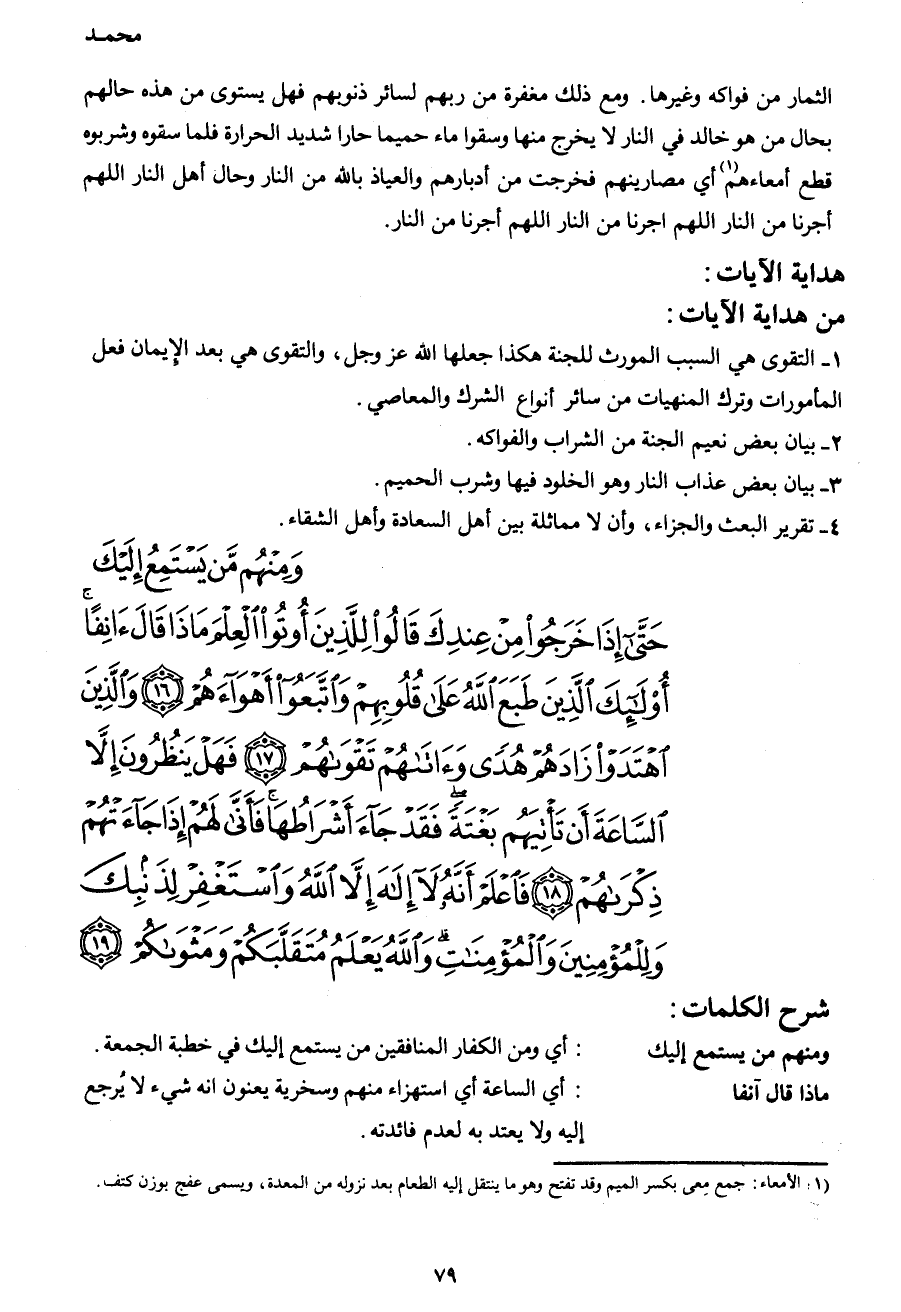 محمـد
الثمار من فواكه وغيرها. ومع ذلك مغفرة من ربهم لسائر ذنوبهم فهل يستوى من هذه حالهم
بحال من هو خالد في النار لا يخرج منها وسقوا ماء حميما حارا شديد الحرارة فلما سقوه وشربوه
قطع أمعاءهم(١) أي مصارينهم فخرجت من أدبارهم والعياذ بالله من النار وحال أهل النار اللهم
أجرنا من النار اللهم اجرنا من النار اللهم أجرنا من النار.
هداية الآيات :
من هداية الآيات :
١ـ التقوى هي السبب المورث للجنة هكذا جعلها الله عز وجل، والتقوى هي بعد الإيمان فعل
المأمورات وترك المنهيات من سائر أنواع الشرك والمعاصي .
٢ـ بيان بعض نعيم الجنة من الشراب والفواكه.
٣ـ بيان بعض عذاب النار وهو الخلود فيها وشرب الحميم .
٤ـ تقرير البعث والجزاء، وأن لا مماثلة بين أهل السعادة وأهل الشقاء.
وَمِنْهُم مَّن يَسْتَمِعُ إِلَيْكَ
حَتَّىٰٓ إِذَا خَرَجُوا۟ مِنْ عِندِكَ قَالُوا۟ لِلَّذِينَ أُوتُوا۟ ٱلْعِلْمَ مَاذَا قَالَ ءَانِفًا ۚ
أُو۟لَٰٓئِكَ ٱلَّذِينَ طَبَعَ ٱللَّهُ عَلَىٰ قُلُوبِهِمْ وَٱتَّبَعُوٓا۟ أَهْوَآءَهُمْ ١٦ وَٱلَّذِينَ
ٱهْتَدَوْا۟ زَادَهُمْ هُدًى وَءَاتَىٰهُمْ تَقْوَىٰهُمْ ١٧ فَهَلْ يَنظُرُونَ إِلَّا
ٱلسَّاعَةَ أَن تَأْتِيَهُم بَغْتَةً ۖ فَقَدْ جَآءَ أَشْرَاطُهَا ۚ فَأَنَّىٰ لَهُمْ إِذَا جَآءَتْهُمْ
ذِكْرَىٰهُمْ ١٨ فَٱعْلَمْ أَنَّهُۥ لَآ إِلَٰهَ إِلَّا ٱللَّهُ وَٱسْتَغْفِرْ لِذَنۢبِكَ
وَلِلْمُؤْمِنِينَ وَٱلْمُؤْمِنَٰتِ ۗ وَٱللَّهُ يَعْلَمُ مُتَقَلَّبَكُمْ وَمَثْوَىٰكُمْ ١٩
شرح الكلمات :
ومنهم من يستمع إليك : أي ومن الكفار المنافقين من يستمع إليك في خطبة الجمعة .
ماذا قال آنفا : أي الساعة أي استهزاء منهم وسخرية يعنون انه شيء لا يُرجع
إليه ولا يعتد به لعدم فائدته .
(١) الأمعاء: جمع مِعى بكسر الميم وقد تفتح وهو ما ينتقل إليه الطعام بعد نزوله من المعدة، ويسمى عفج بوزن كتف.
٧٩